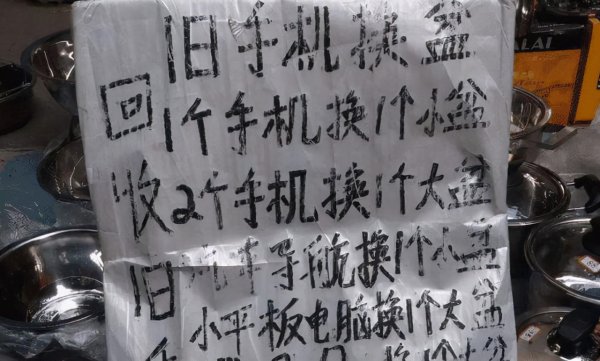 旧手机换盆
回收旧
1个手机换1个小盆
2个手机换1个大盆
汽车导航换1个小盆
小平板电脑换1个大盆
ALAI